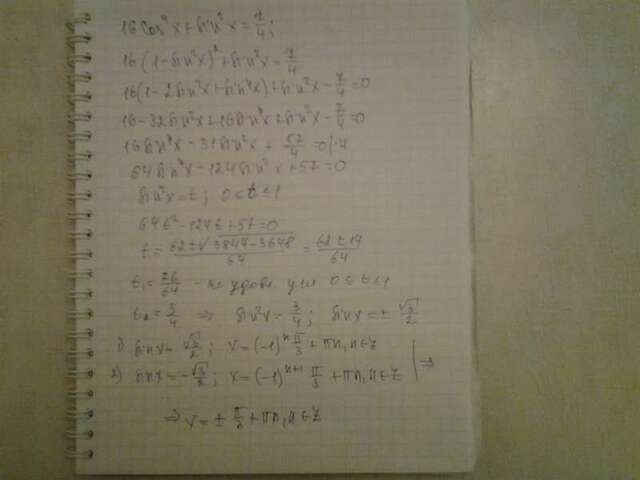 16 cos⁴x + sin²x = 7/4;
16(1 - sin²x)² + sin²x = 7/4
16(1 - 2sin²x + sin⁴x) + sin²x - 7/4 = 0
16 - 32sin²x + 16sin⁴x + sin²x - 7/4 = 0
16sin⁴x - 31sin²x + 57/4 = 0 |·4
64sin⁴x - 124sin²x + 57 = 0
sin²x = t; 0 ≤ t ≤ 1
64t² - 124t + 57 = 0
t = (62 ± √(3844 - 3648))/64 = (62 ± 14)/64
t₁ = 76/64 - не удовл. усл 0 ≤ t ≤ 1
t₂ = 3/4 ⇒ sin²x = 3/4; sin x = ± √3/2
1) sin x = √3/2; x = (-1)ⁿ π/3 + πn, n∈Z
2) sin x = -√3/2; x = (-1)ⁿ⁺¹ π/3 + πn, n∈Z | ⇒
⇒ x = ± π/3 + πn, n∈Z